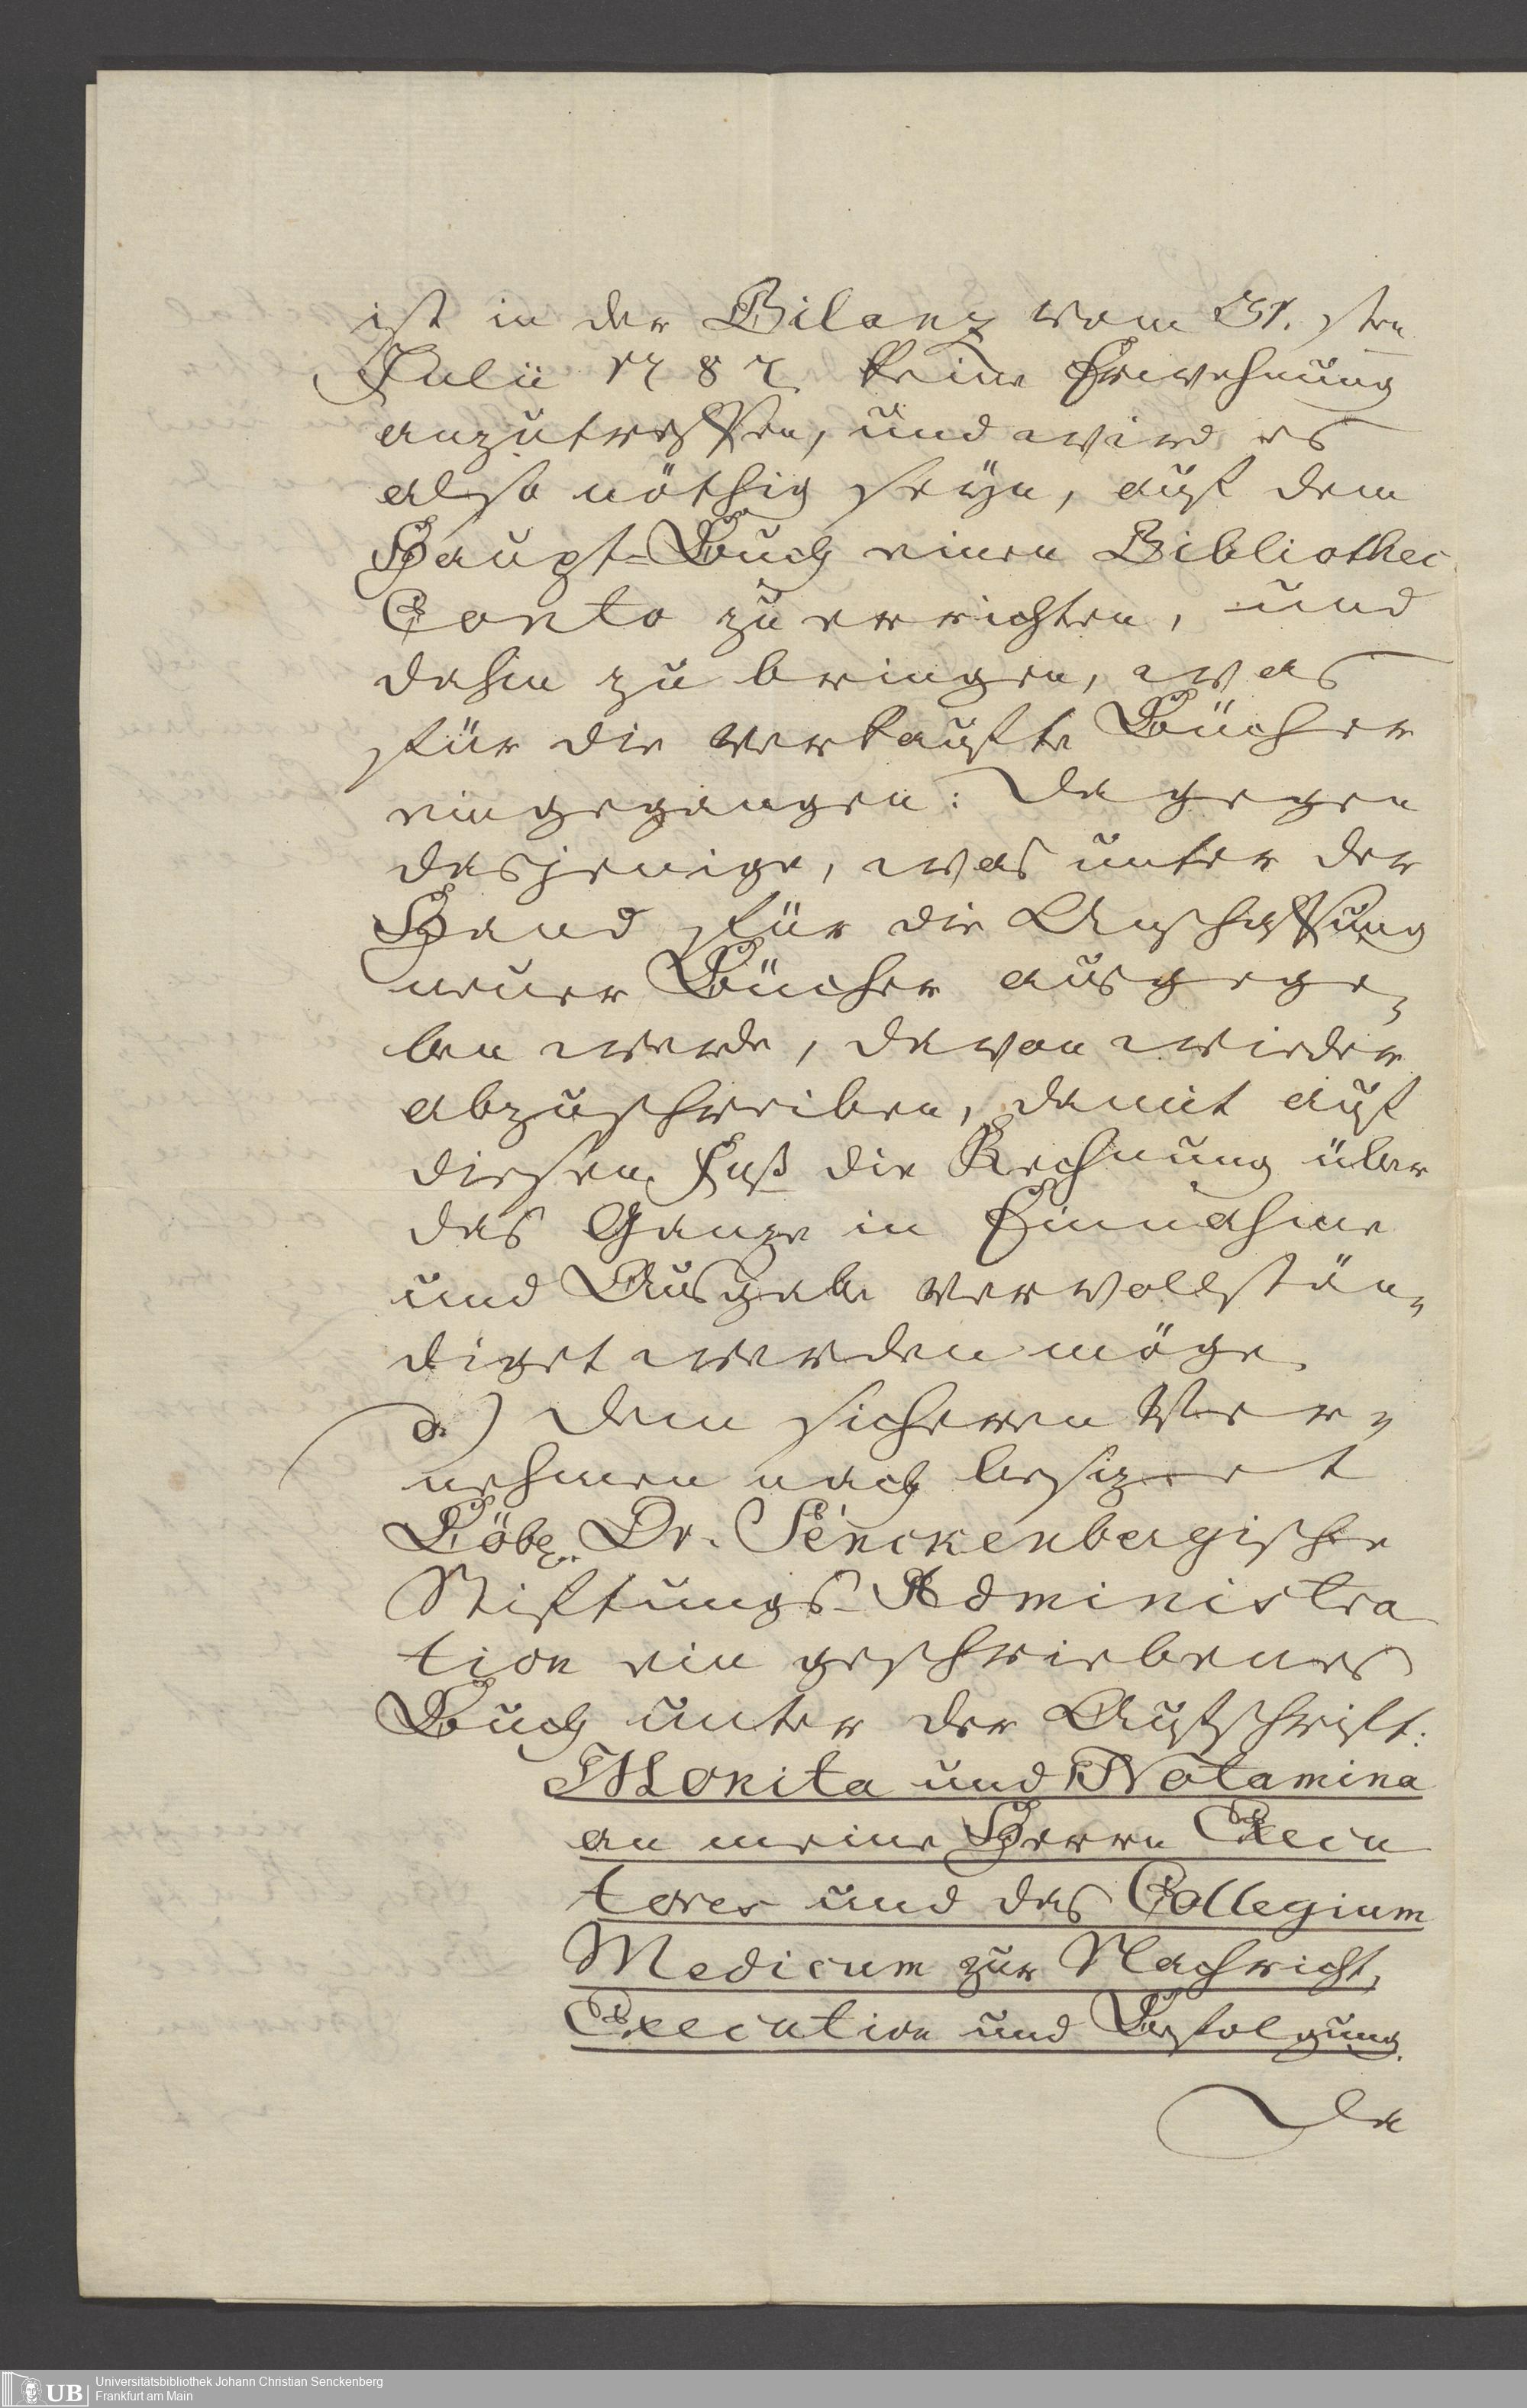 ist in der Bilanz vom 31. sten
Julii 1787 keine Erwehnung
anzutreffen, und wird es
also nöthig seÿn, auf dem
Haupt-Buch einen Bibliothec
Conto zu errichten, und
dahin zu bringen, was
für die verkaufte Bücher
eingegangen: Dagegen
dasjenige, was unter der
Hand für die Anschaffung
neuer Bücher ausgege„
ben werde, davon wieder
abzuschreiben, damit auf
diesen Fuß die Rechnung über
das Ganze in Einnahme
und Ausgabe vervollstän„
diget werden möge.
d.) Dem sicheren Ver„
nehmen nach besizet
Löbl. Dr. Senckenbergische
Stiftungs-Administra
tion ein geschriebenes
Buch unter der Aufschrift:
Monita und Notamina
an meine Herren Execu
tores und das Collegium
Medicum zur Nachricht,
Execution und Befolgung.
Da
UB
Universitätsbibliothek Johann Christian Senckenberg
Frankfurt am Main